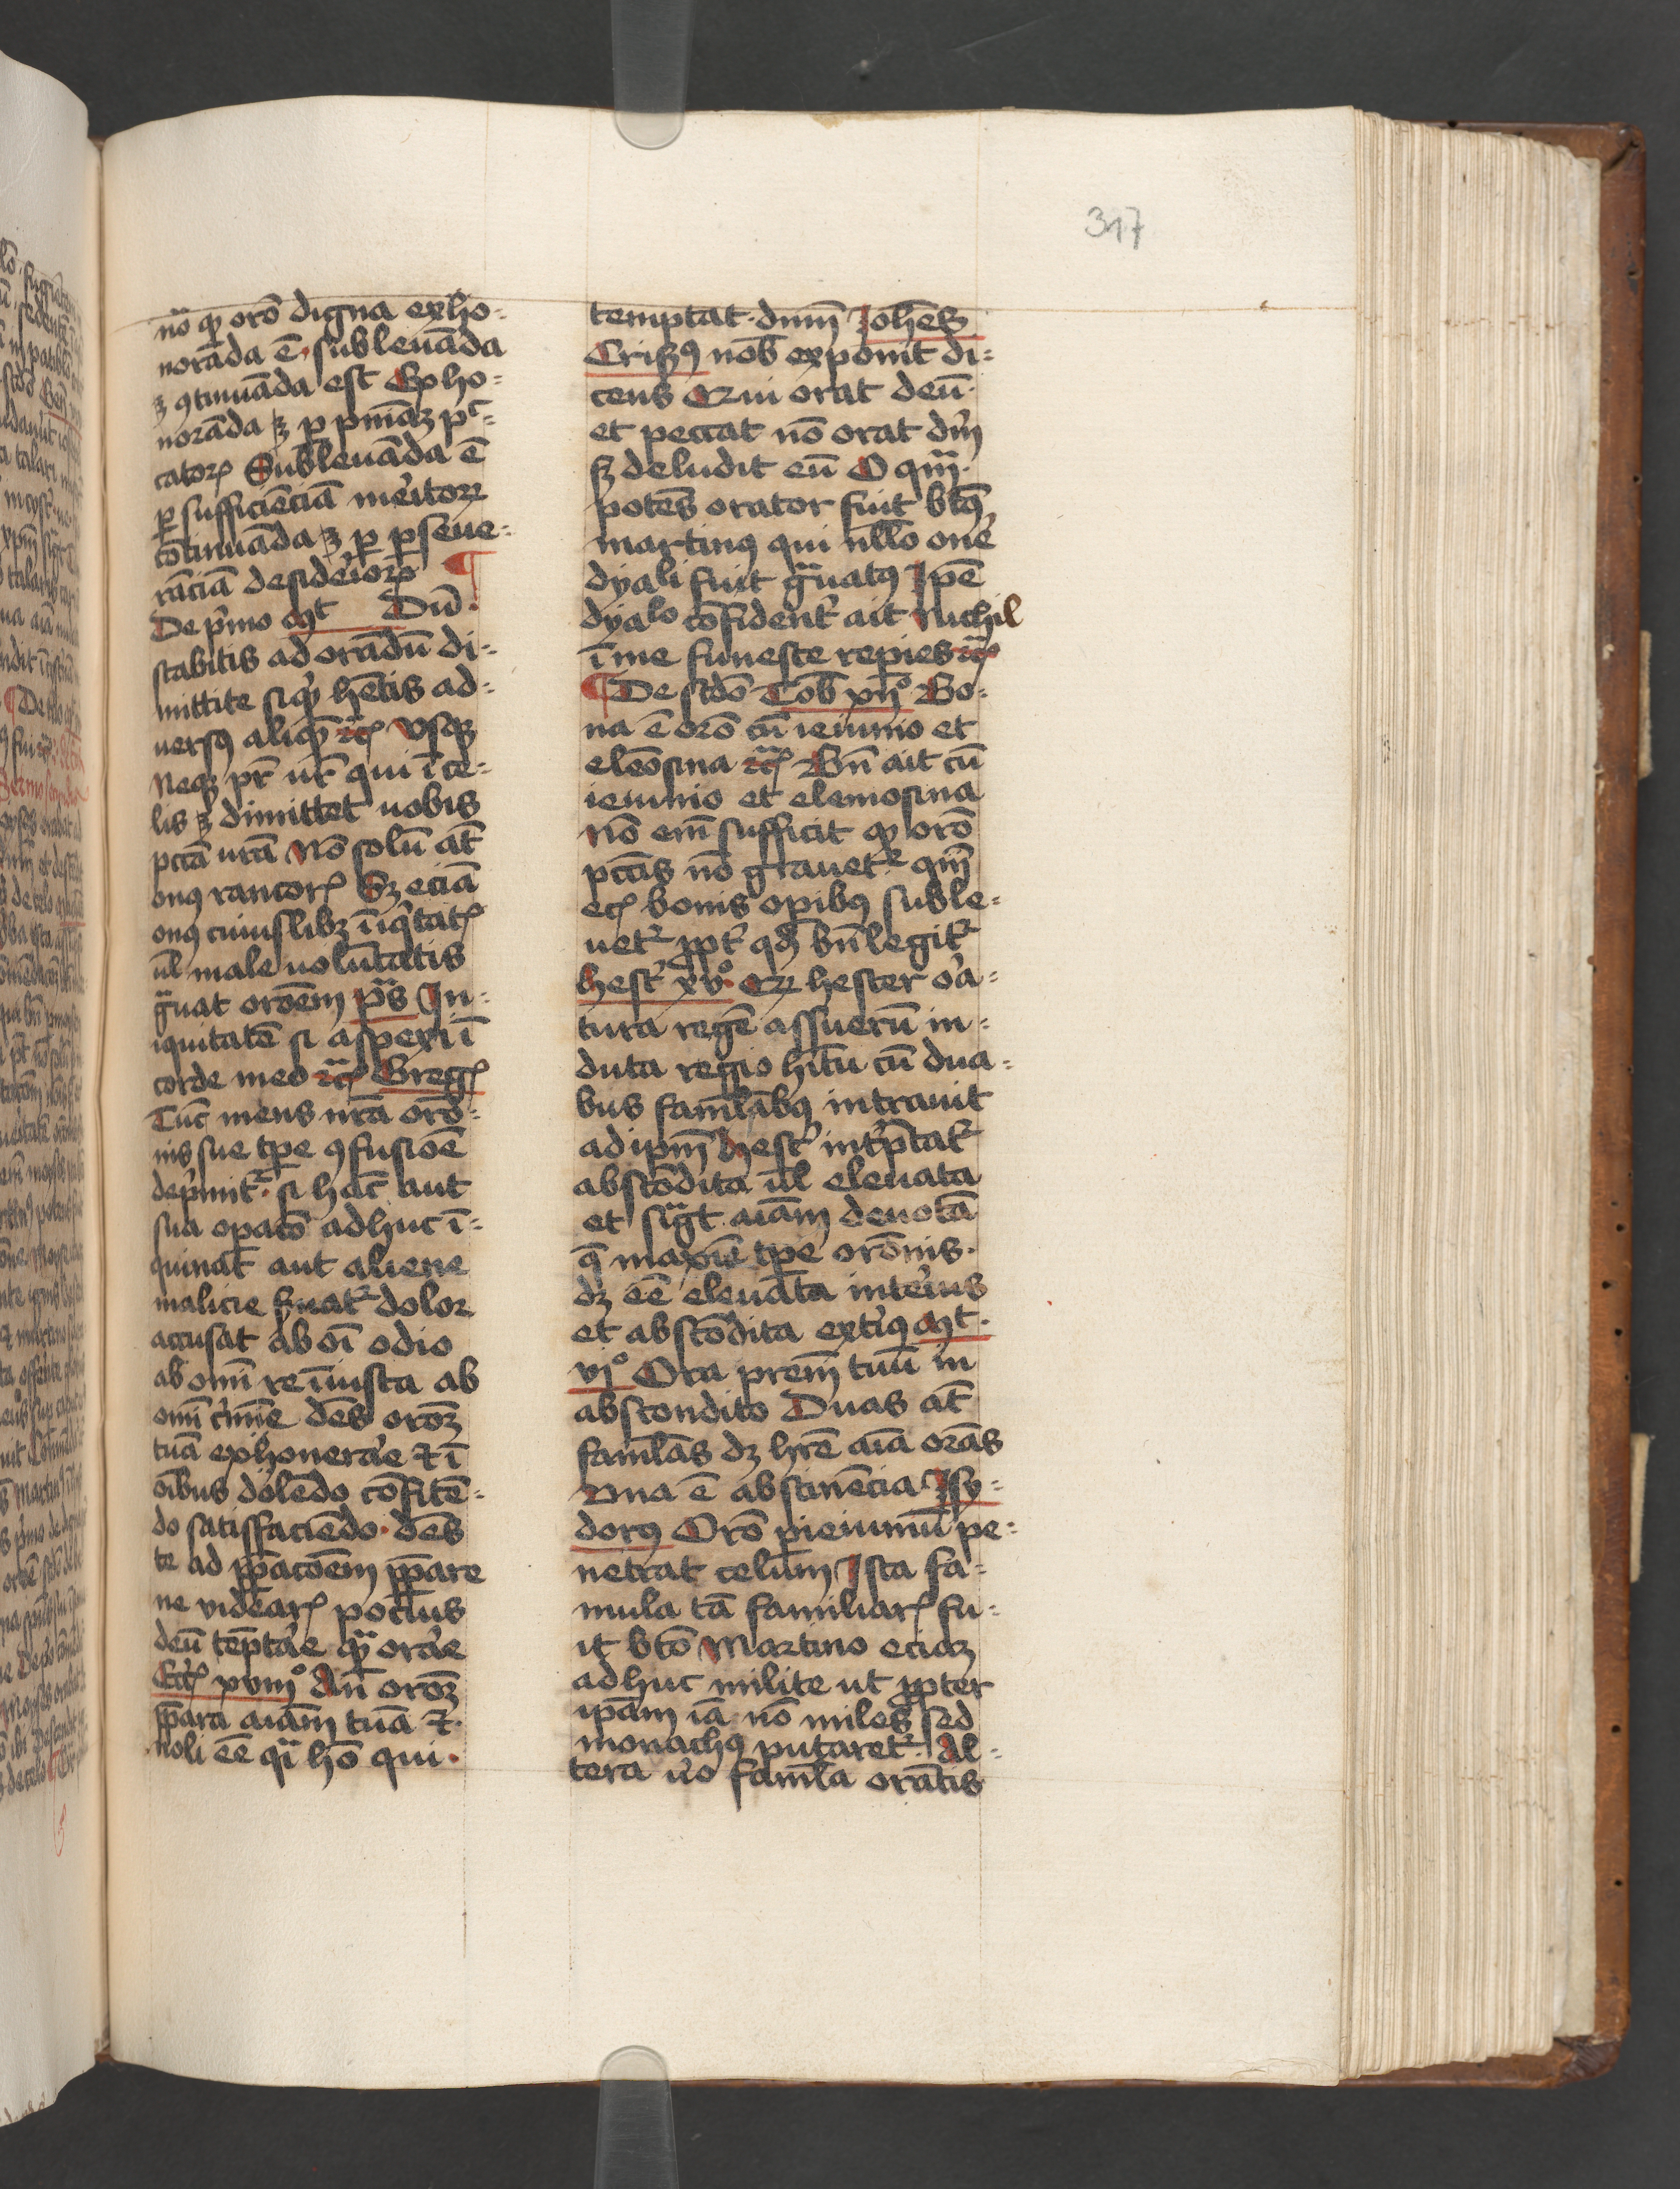 317
nō qp orō digna exho-
norāda ē subleuāda
ꝫ ꝯtinuāda est Exho-
norāda ꝫ ꝑ pniāꝫ pc-
catorꝫ Subleuāda ē
ꝑ sufficiēciā meritorꝫ
cōtinuāda ꝫ ꝑ ꝑseue-
rāciā desideriorꝫ ¶
De pͥmo Mt Dū
stabitis ad orādū di-
mittite siqͥd hētis ad-
uersꝯ aliqͥd ꝛcꝫ Vsqꝫ
Neqꝫ pr̄ ur̄ qui ī ce-
lis ꝫ dimittet uobis
pctā urā Nō solū at̄
onꝯ rancorꝫ Sꝫ eciā
onꝯ cuiuslibꝫ īiqͥtatꝫ
ul̄ male uolūtatis
gͣuat orōem pͣs In-
iquitatē si aspexi ī
corde meo ꝛcꝫ Gregꝫ
Tūc mens nr̄a orō-
nis sue tp̄e ꝯfusiōe
depͥmitͬ si hāc aut
sua opacō adhuc ī-
quinat aut aliene
malicie ẜuatͬ dolor
accusat ab oī odio
ab omī re īiusta ab
omī cͥmīe dēs orōꝫ
tuā exhonerāe ⁊ ī
oībus dolēdo cōfitē-
do satisfaciēdo dēs
te ad ꝑpacōem ꝑpare
ne videarꝫ pocius
deū tēptāe qͣ orāe
Eccꝫ xviijͦ An̄ orōꝫ
ꝑpara aīam tuā ⁊
noli eē qͣi hō qui
temptat dnm̄ Johēs
Crisꝯ nob̄ exponit di-
cens Qui orat deū
et peccat nō orat dm̄
sꝫ deludit eū O qͣm
potēs orator fuit btꝯ
martinꝯ qui nllō one
dyali fuit gͣuatꝯ Ipē
dyalo cōfidentͬ ait Nichil
ī me funeste repies ꝛcꝫ
¶ De scdō Tob xijͦ Bo-
na ē orō cū ieiunio et
eleōsina ꝛcꝫ Bn̄ ait cū
ieiunio et elemosina
Nō em̄ sufficit qp orō
pctīs nō grauetͬ qm̄
ecꝫ bonis opibꝯ suble-
uetͬ ꝓptͬ qd̄ bn̄ legitͬ
hestͬ xvͦ Qꝫ hester oͣ-
tura regē assuerū in-
duta regio hitu cū dua-
bus famlabꝯ intrauit
ad ipm̄ Hestͬ intͬptatͬ
abscōdita ul̄ eleuata
et sigͣt aīam deuotā
q̄ maxīe tp̄e orōnis
dꝫ eē eleuata interius
et abscōdita extiꝯ Mt
vjͦ Ora prem̄ tuū in
abscondito Duas at̄
famlās dꝫ hr̄e aīa orās
Vna ē abstinēcia Isy-
dorꝯ Orō pieiuniū pe-
netrat celum Ista fa-
mula tā familiarꝫ fu-
it btō Martino eciaꝫ
adhuc milite ut ꝓpter
ip̄am iā nō miles sed
monachꝯ putaretͬ Al-
tera uͦo famla orātis